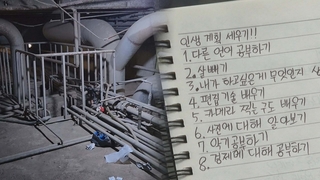 인생 계획 세우기!!
1. 다른 언어 공부하기
2. 살빼기
3. 내가 하고싶은게 무엇인지 생
4. 편집기술 배우기
5. 카메라 찍는 구도 배우기
6. 사진에 대해 알아보기
7. 악기공부하기
8. 경제에 대해 공부하기